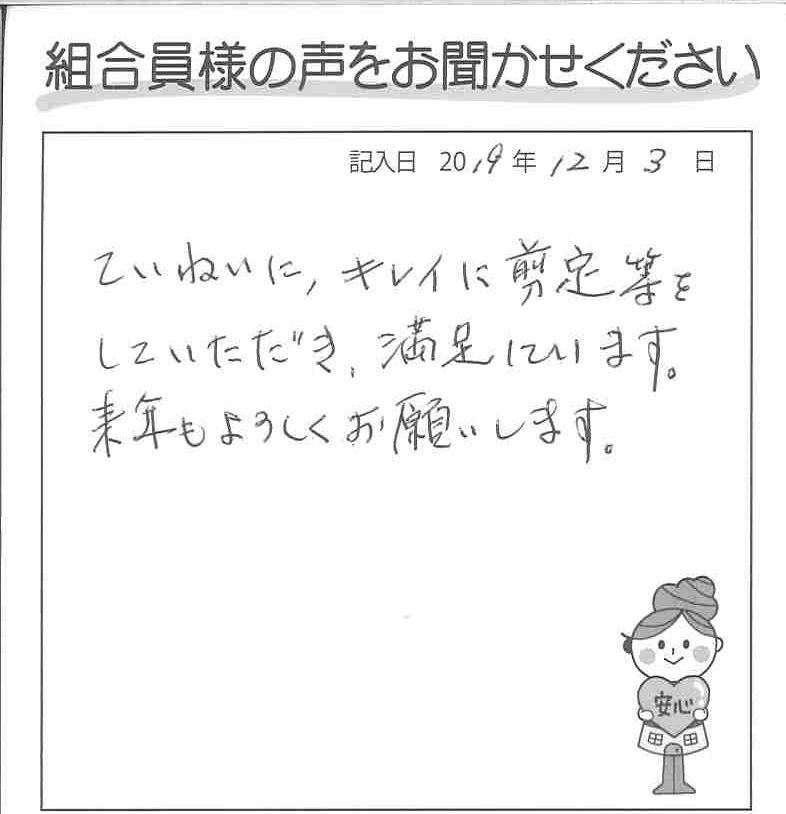 組合員様の声をお聞かせください
記入日 2019年12月3日
ていねいに、キレイに剪定等を
していただき、満足しています。
来年もよろしくお願いします。
安心